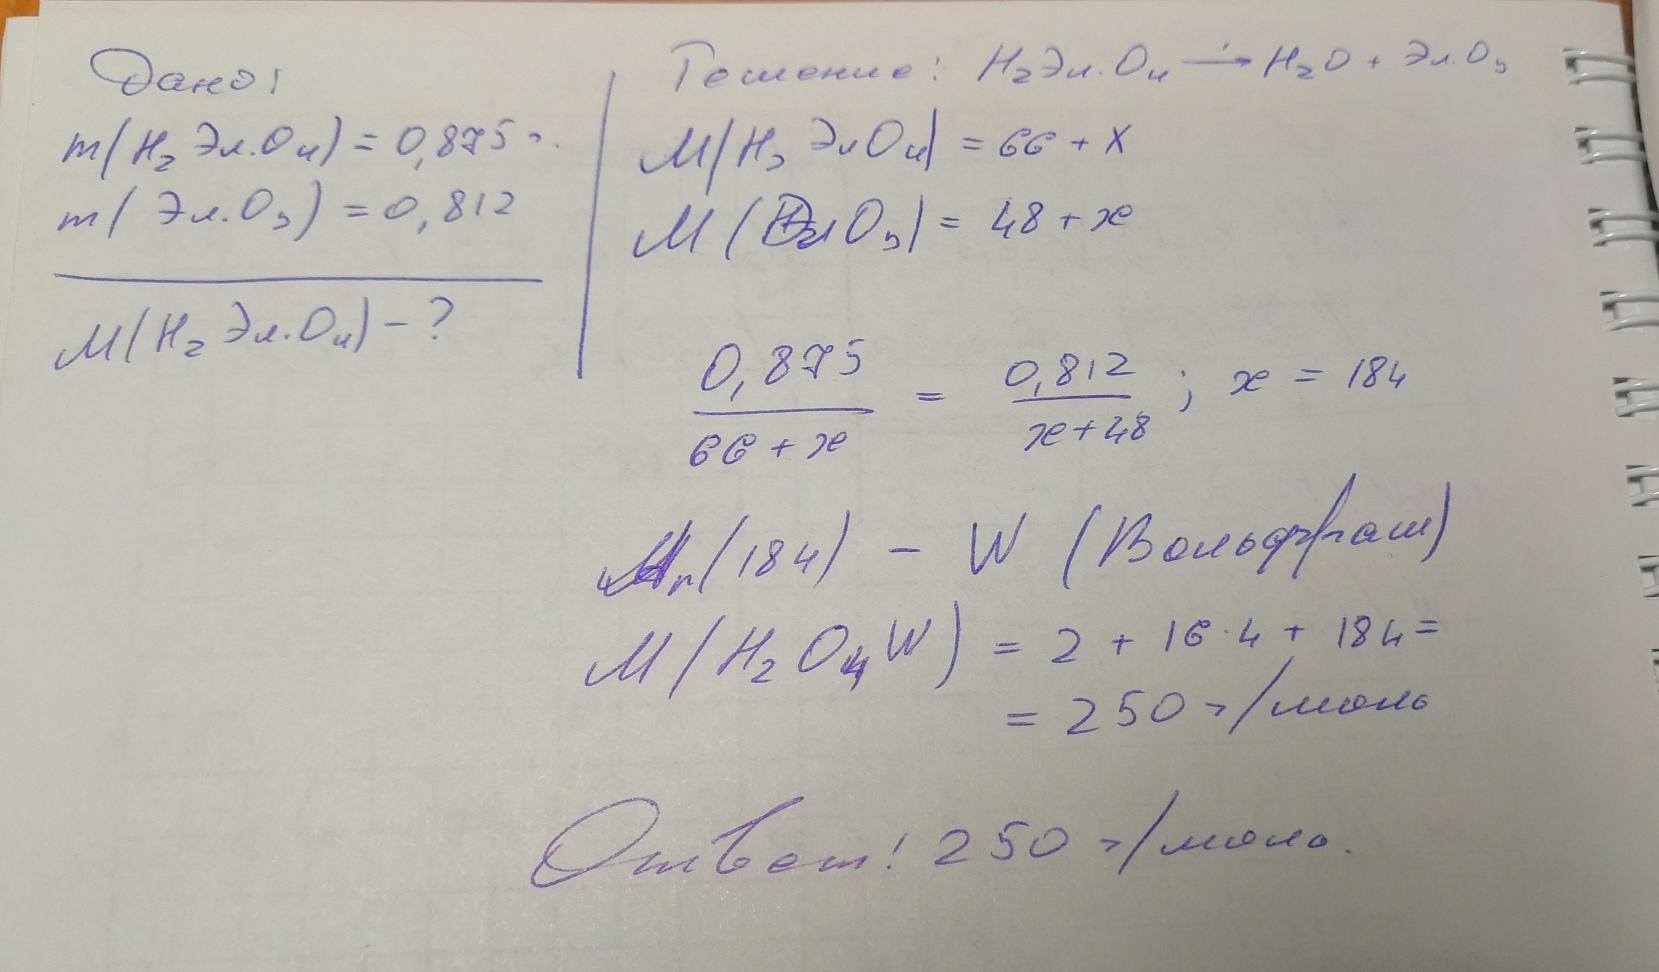 Дано:
m(H₂Эл.O₄) = 0,875 г.
m(Эл.O₃) = 0,812
M(H₂Эл.O₄) - ?
Решение: H₂Эл.O₄ → H₂O + Эл.O₃
M(H₂ЭлO₄) = 66 + X
M(ЭлO₃) = 48 + x
0,875/(66 + x) = 0,812/(x + 48) ; x = 184
Ar(184) - W (Вольфрам)
M(H₂O₄W) = 2 + 16·4 + 184 =
= 250 г/моль
Ответ: 250 г/моль.